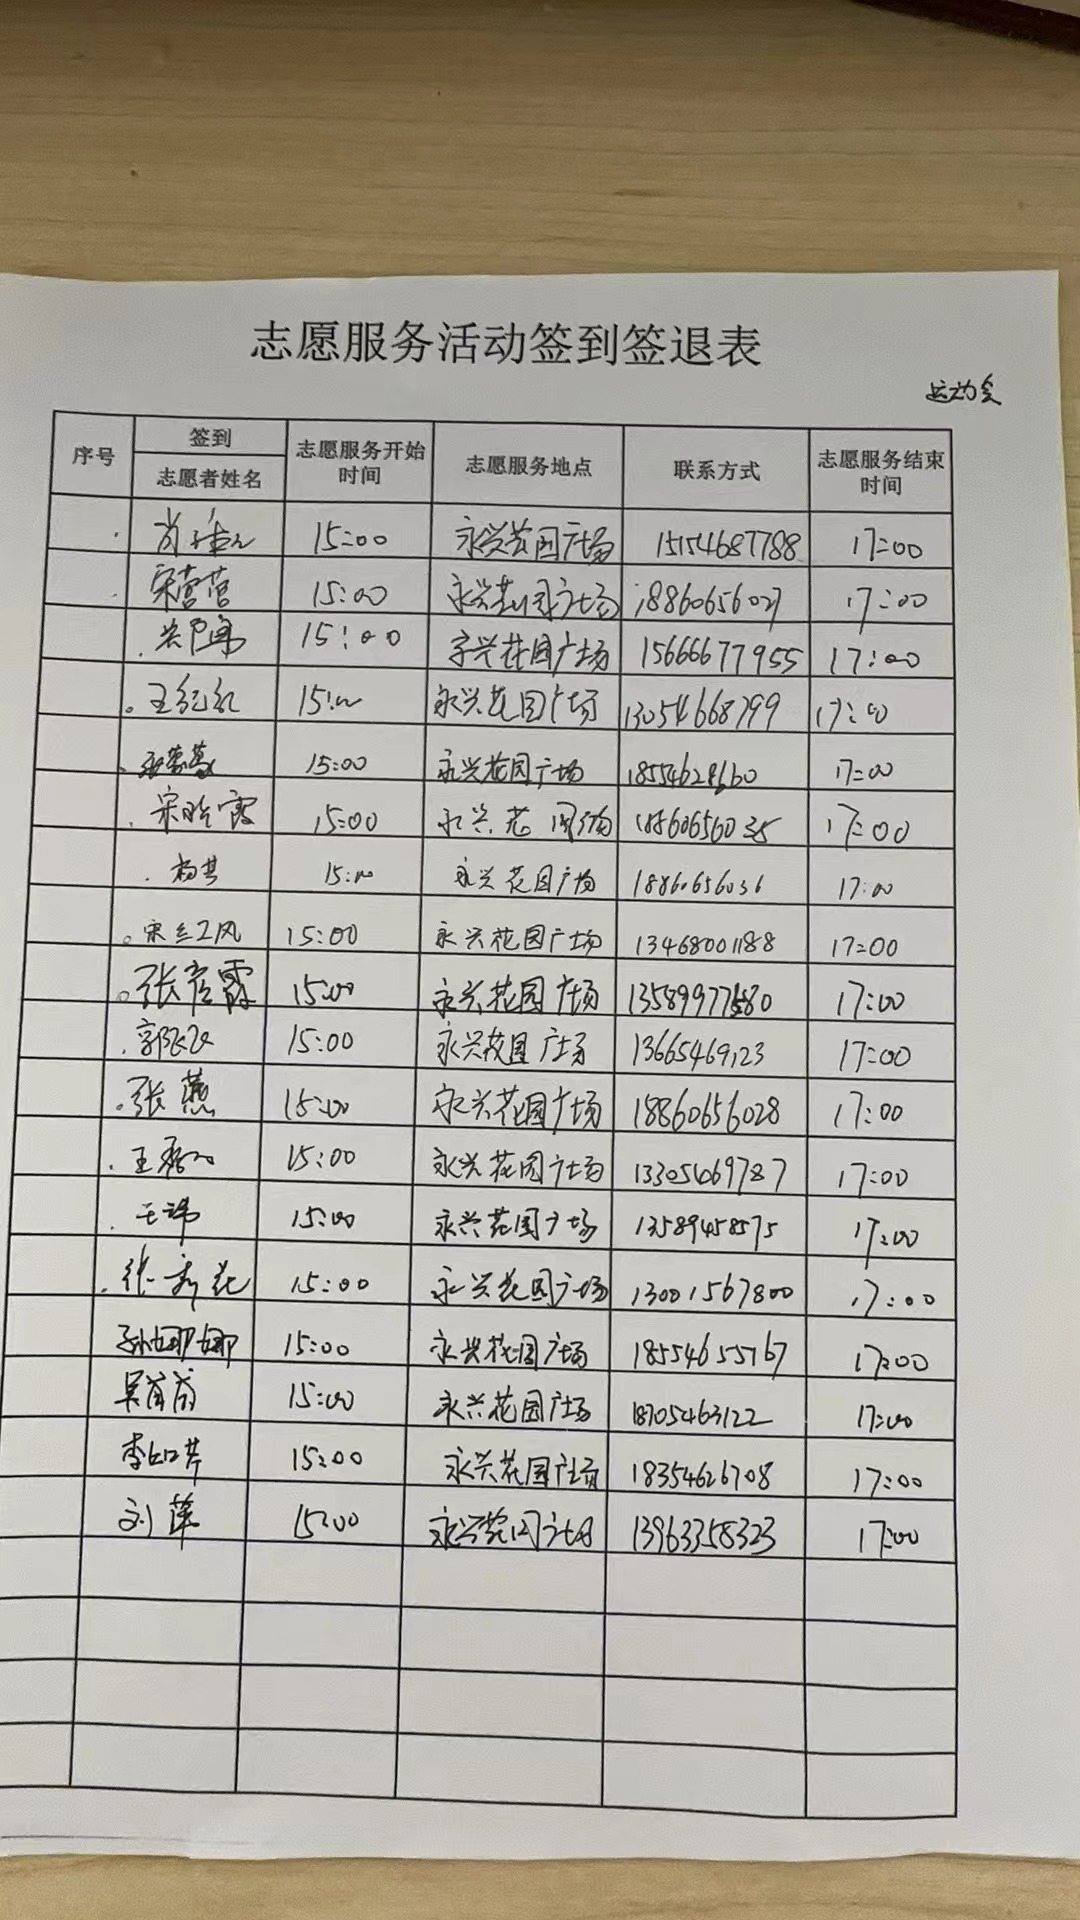 志愿服务活动签到签退表
运动会
序号 签到 志愿者姓名 志愿服务开始时间 志愿服务地点 联系方式 志愿服务结束时间
15:00 永兴花园广场 15154687788 17:00
宋营营 15:00 永兴花园广场 18860656027 17:00
15:00 永兴花园广场 15666677955 17:00
王红红 15:00 永兴花园广场 13054668799 17:00
15:00 永兴花园广场 17:00
宋晗霞 15:00 永兴花园广场 18860656035 17:00
杨芸 15:00 永兴花园广场 18860656036 17:00
宋兰卫风 15:00 永兴花园广场 13468001188 17:00
张彦霞 15:00 永兴花园广场 17:00
郭飞飞 15:00 永兴花园广场 13665469123 17:00
张燕 15:00 永兴花园广场 18860656028 17:00
王 15:00 永兴花园广场 13305469787 17:00
王玮 15:00 永兴花园广场 13589458575 17:00
徐秀花 15:00 永兴花园广场 13001567800 17:00
孙娜娜 15:00 永兴花园广场 18554655767 17:00
吴苗苗 15:00 永兴花园广场 18705463122 17:00
李 芹 15:00 永兴花园广场 18354626708 17:00
刘萍 15:00 永兴花园广场 13963358323 17:00